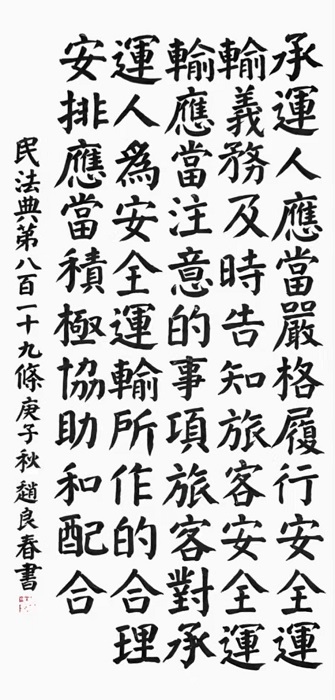 承運人應當嚴格履行安全運
輸義務及時告知旅客安全運
輸應當注意的事項旅客對承
運人為安全運輸所作的合理
安排應當積極協助和配合
民法典第八百一十九條庚子秋趙良春書